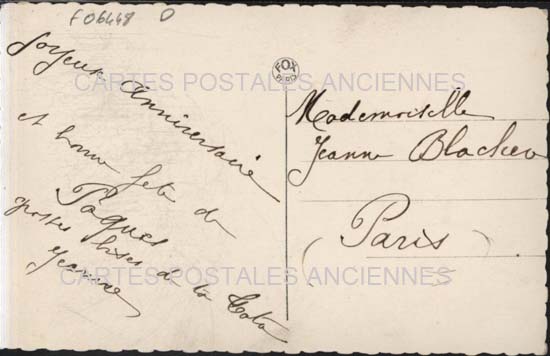 F06448 D
Joyeux Anniversaire
et bonne fete de
Paques
grosses bises de la Tata
Jeanine
FOX
PARIS
Mademoiselle
Jeanne
( Paris )
CARTES POSTALES ANCIENNES
CARTES POSTALES ANCIENNES